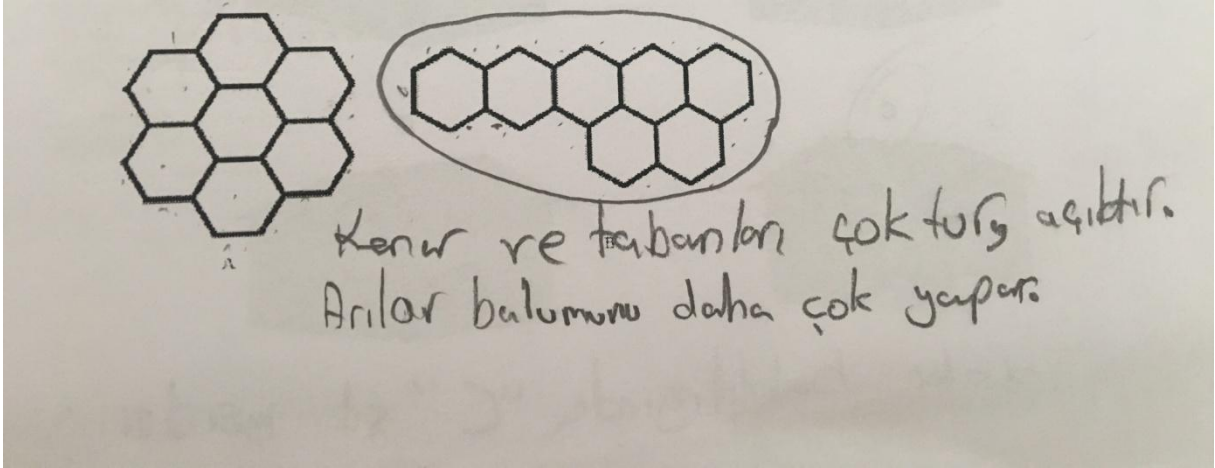 Kenar ve tabanları çoktur, açıktır.
Arılar balumunu daha çok yapar.